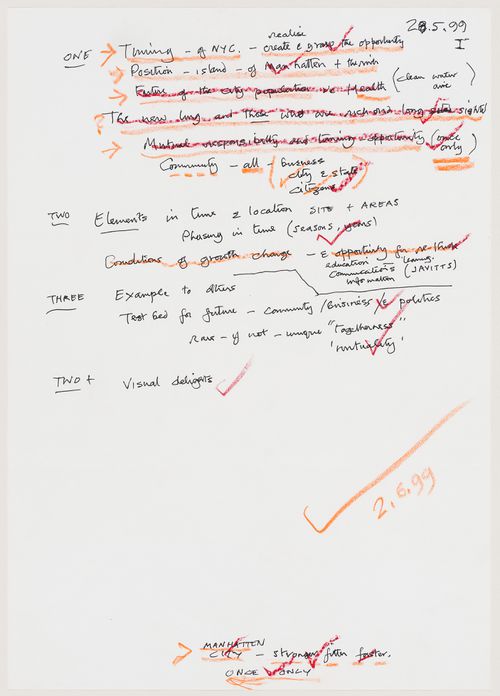 28.5.99
I
realise
ONE Timing - of NYC. - create & grasp the opportunity
Position - island - of Manhatten + the rivers
Future of the city population i.e Health (clean water
air)
The new and those who are and long
Mutual responsibility and timing opportunity (once
only)
Community - all - (business
city & state
citizens
TWO Elements in time & location SITE + AREAS
Phasing in time (seasons, years)
Conditions of growth change - & opportunity for re-think
education learning.
Communications
information (JAVITTS)
THREE Example to others
Test bed for future - community/Business/& politics
Rare - if not - unique "Togetherness"
'mutuality'
TWO + Visual delights
2.6.99
MANHATTEN
CITY - stronger fitter faster.
ONCE ONLY